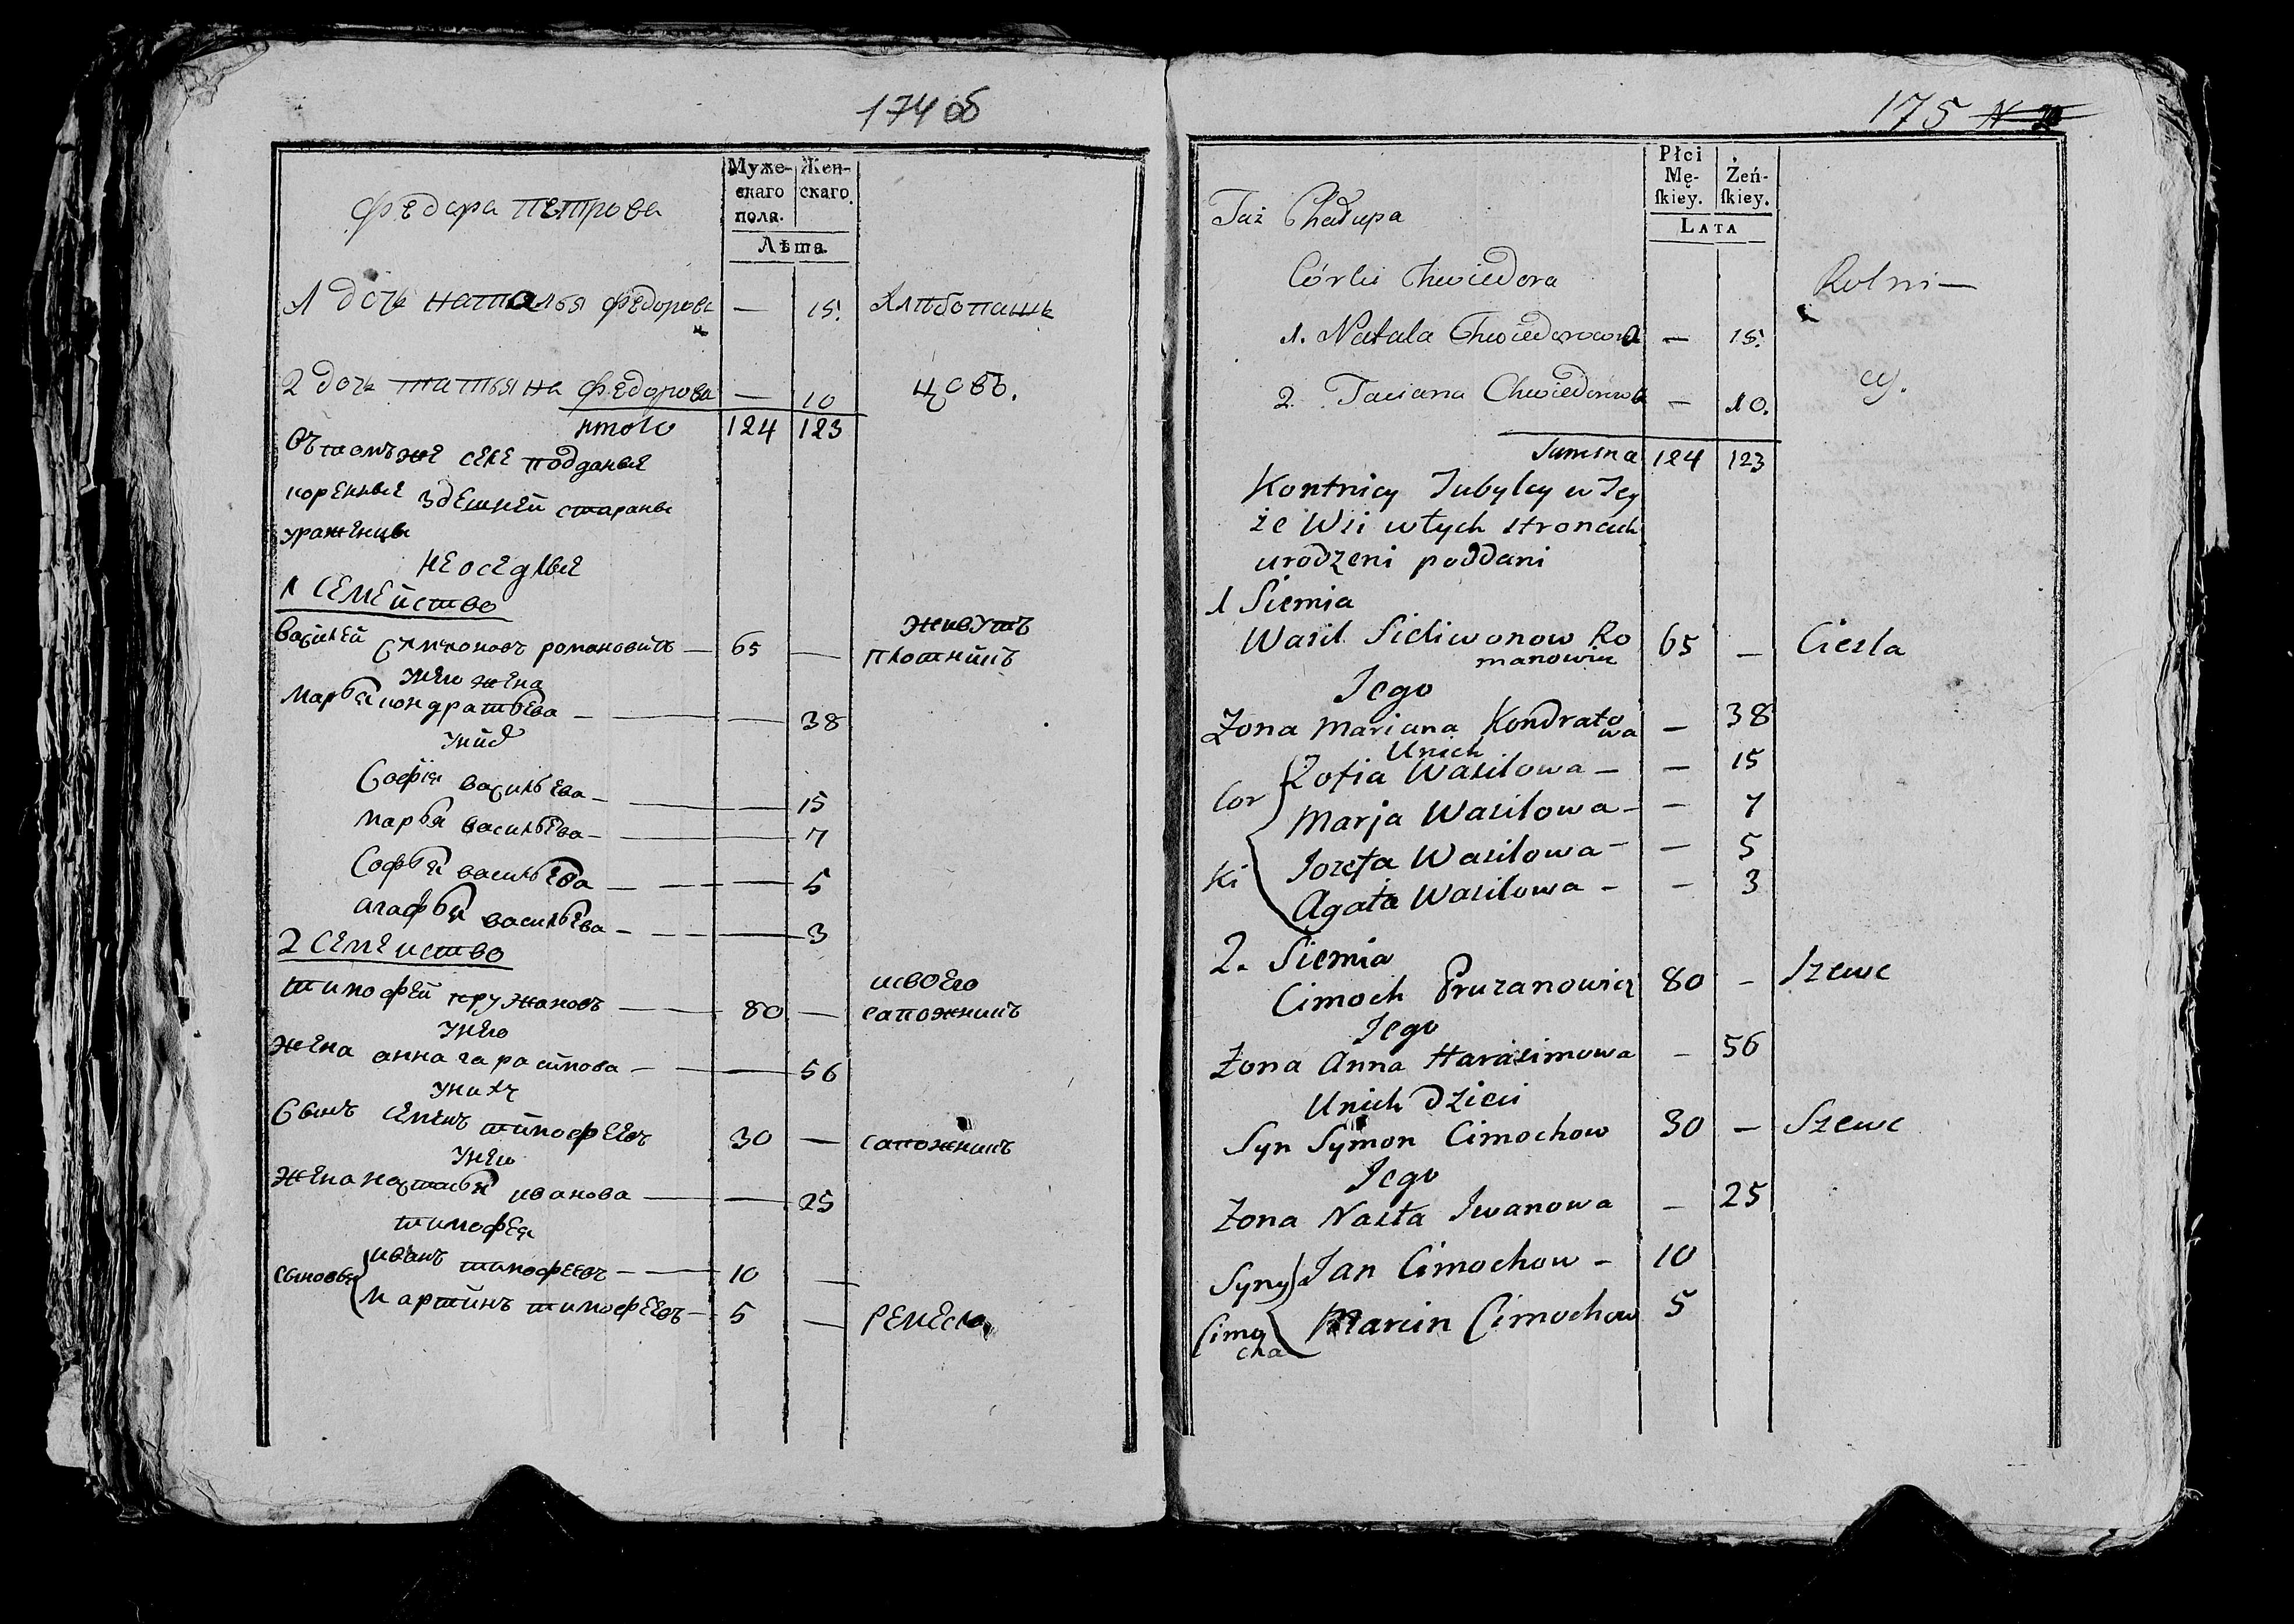 174 об
Муже-
скаго
пола.
Жен-
скаго.
Лѣта
Федора петрова
1 дочь наталья федорова — 15. хлѣбопаш
2 дочь татьяна федорова — 10 цовъ.
итого 124 123
вътомъже селе подданые
коренные здешней стараны
уроженцы
неоседлые
1 семейство
живутъ
василей селивоновъ романовичъ — 65 — плотникъ
унего жена
марья кондратьева — — 38
унихъ
софія васильева — — 15
марья васильева — — 7
софья васильева — — 5
агафья васильева — — 3
2 семеиство
исвоего
тимофей пружановъ — 80 — сапожникъ
унего
жена анна гарасимова — — 56
унихъ
сынъ семенъ тимофеевъ 30 — сапожникъ
унего
жена настасья иванова — — 25
тимофея
сыновья иванъ тимофеевъ — 10 —
мартинъ тимофеевъ — 5 — ремесла
175 N 2
Płci
Mę-
ſkiey.
Żeń-
ſkiey.
LATA
Taż Chałupa
Córki Chwiedora Rolni—
1. Natala Chwiedorowa — 15.
2. Taciana Chwiedorowa — 10. cy.
Summa 124 123
Kontnicy Jubylcy w Tey
że Wsi wtych stronach
urodzeni poddani
1 Siemia
Wasil Sieliwonow Ro 65 — Ciesla
manowicz
Jego
Zona Mariana Kondrato — 38
wa
Unich
Zofia Wasilowa — — 15
Cor Marja Wasilowa — — 7
Jozefa Wasilowa — — 5
Ki Agata Wasilowa — — 3
2. Siemia
Cimoch Pruzanowicz 80 — Szewc
Jego
Zona Anna Harasimowa — 56
Unich Dzieci
Syn Symon Cimochow 30 — Szewc
Jego
Zona Nasta Iwanowa — 25
Syny Jan Cimochow — 10
Cimo Marcin Cimochow 5
cha